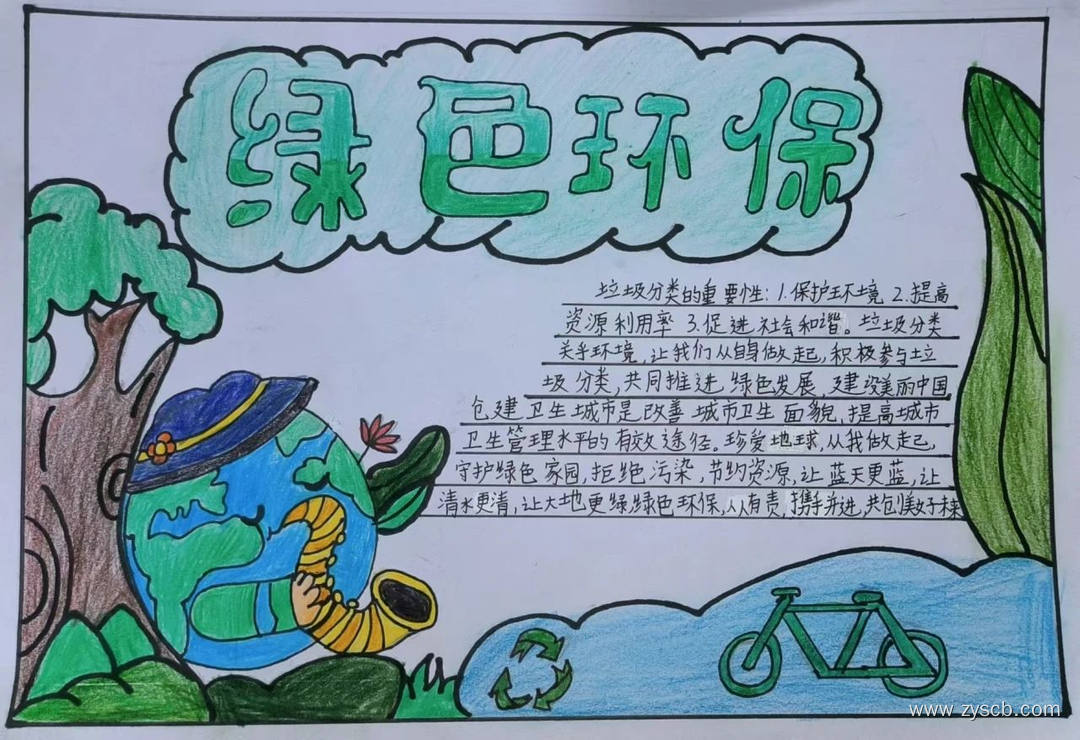 绿色环保
垃圾分类的重要性:1.保护环境 2.提高
资源利用率 3.促进社会和谐。垃圾分类
关乎环境,让我们从自身做起,积极参与垃
圾分类,共同推进绿色发展,建设美丽中国
仓建卫生城市是改善城市卫生面貌,提高城市
卫生管理水平的有效途径。珍爱地球,从我做起,
守护绿色家园,拒绝污染,节约资源,让蓝天更蓝,让
清水更清,让大地更绿,绿色环保,人人有责,携手并进,共创美好未来
www.zyscb.com